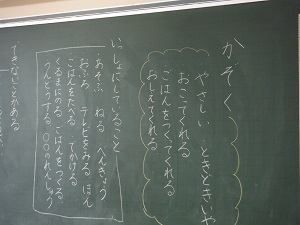 かぞく
やさしい ときどきいや
おこてくれる
ごはんをつくてくれる
おしえてくれる
いっしょにしていること
あそぶ ねる べんきょう
おふろ テレビをみる ほん
ごはんをたべる でかける
くるまにのる ごはんをつくる
うんどうする 〇〇のれんしゅう
できないことがある